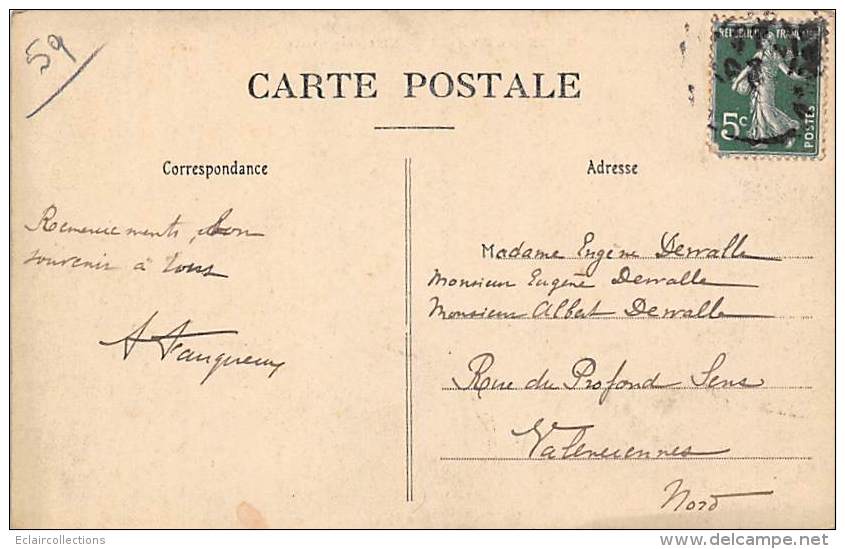 59
CARTE POSTALE
RÉPUBLIQUE FRANÇAISE
5c
POSTES
Correspondance
Remerciements, bon
souvenir à tous
Adresse
Madame Eugène Derralle
Monsieur Eugène Derralle
Monsieur Albert Derralle
Rue du Profond Sens
Valenciennes
Nord
Eclaircollections
www.delcampe.net